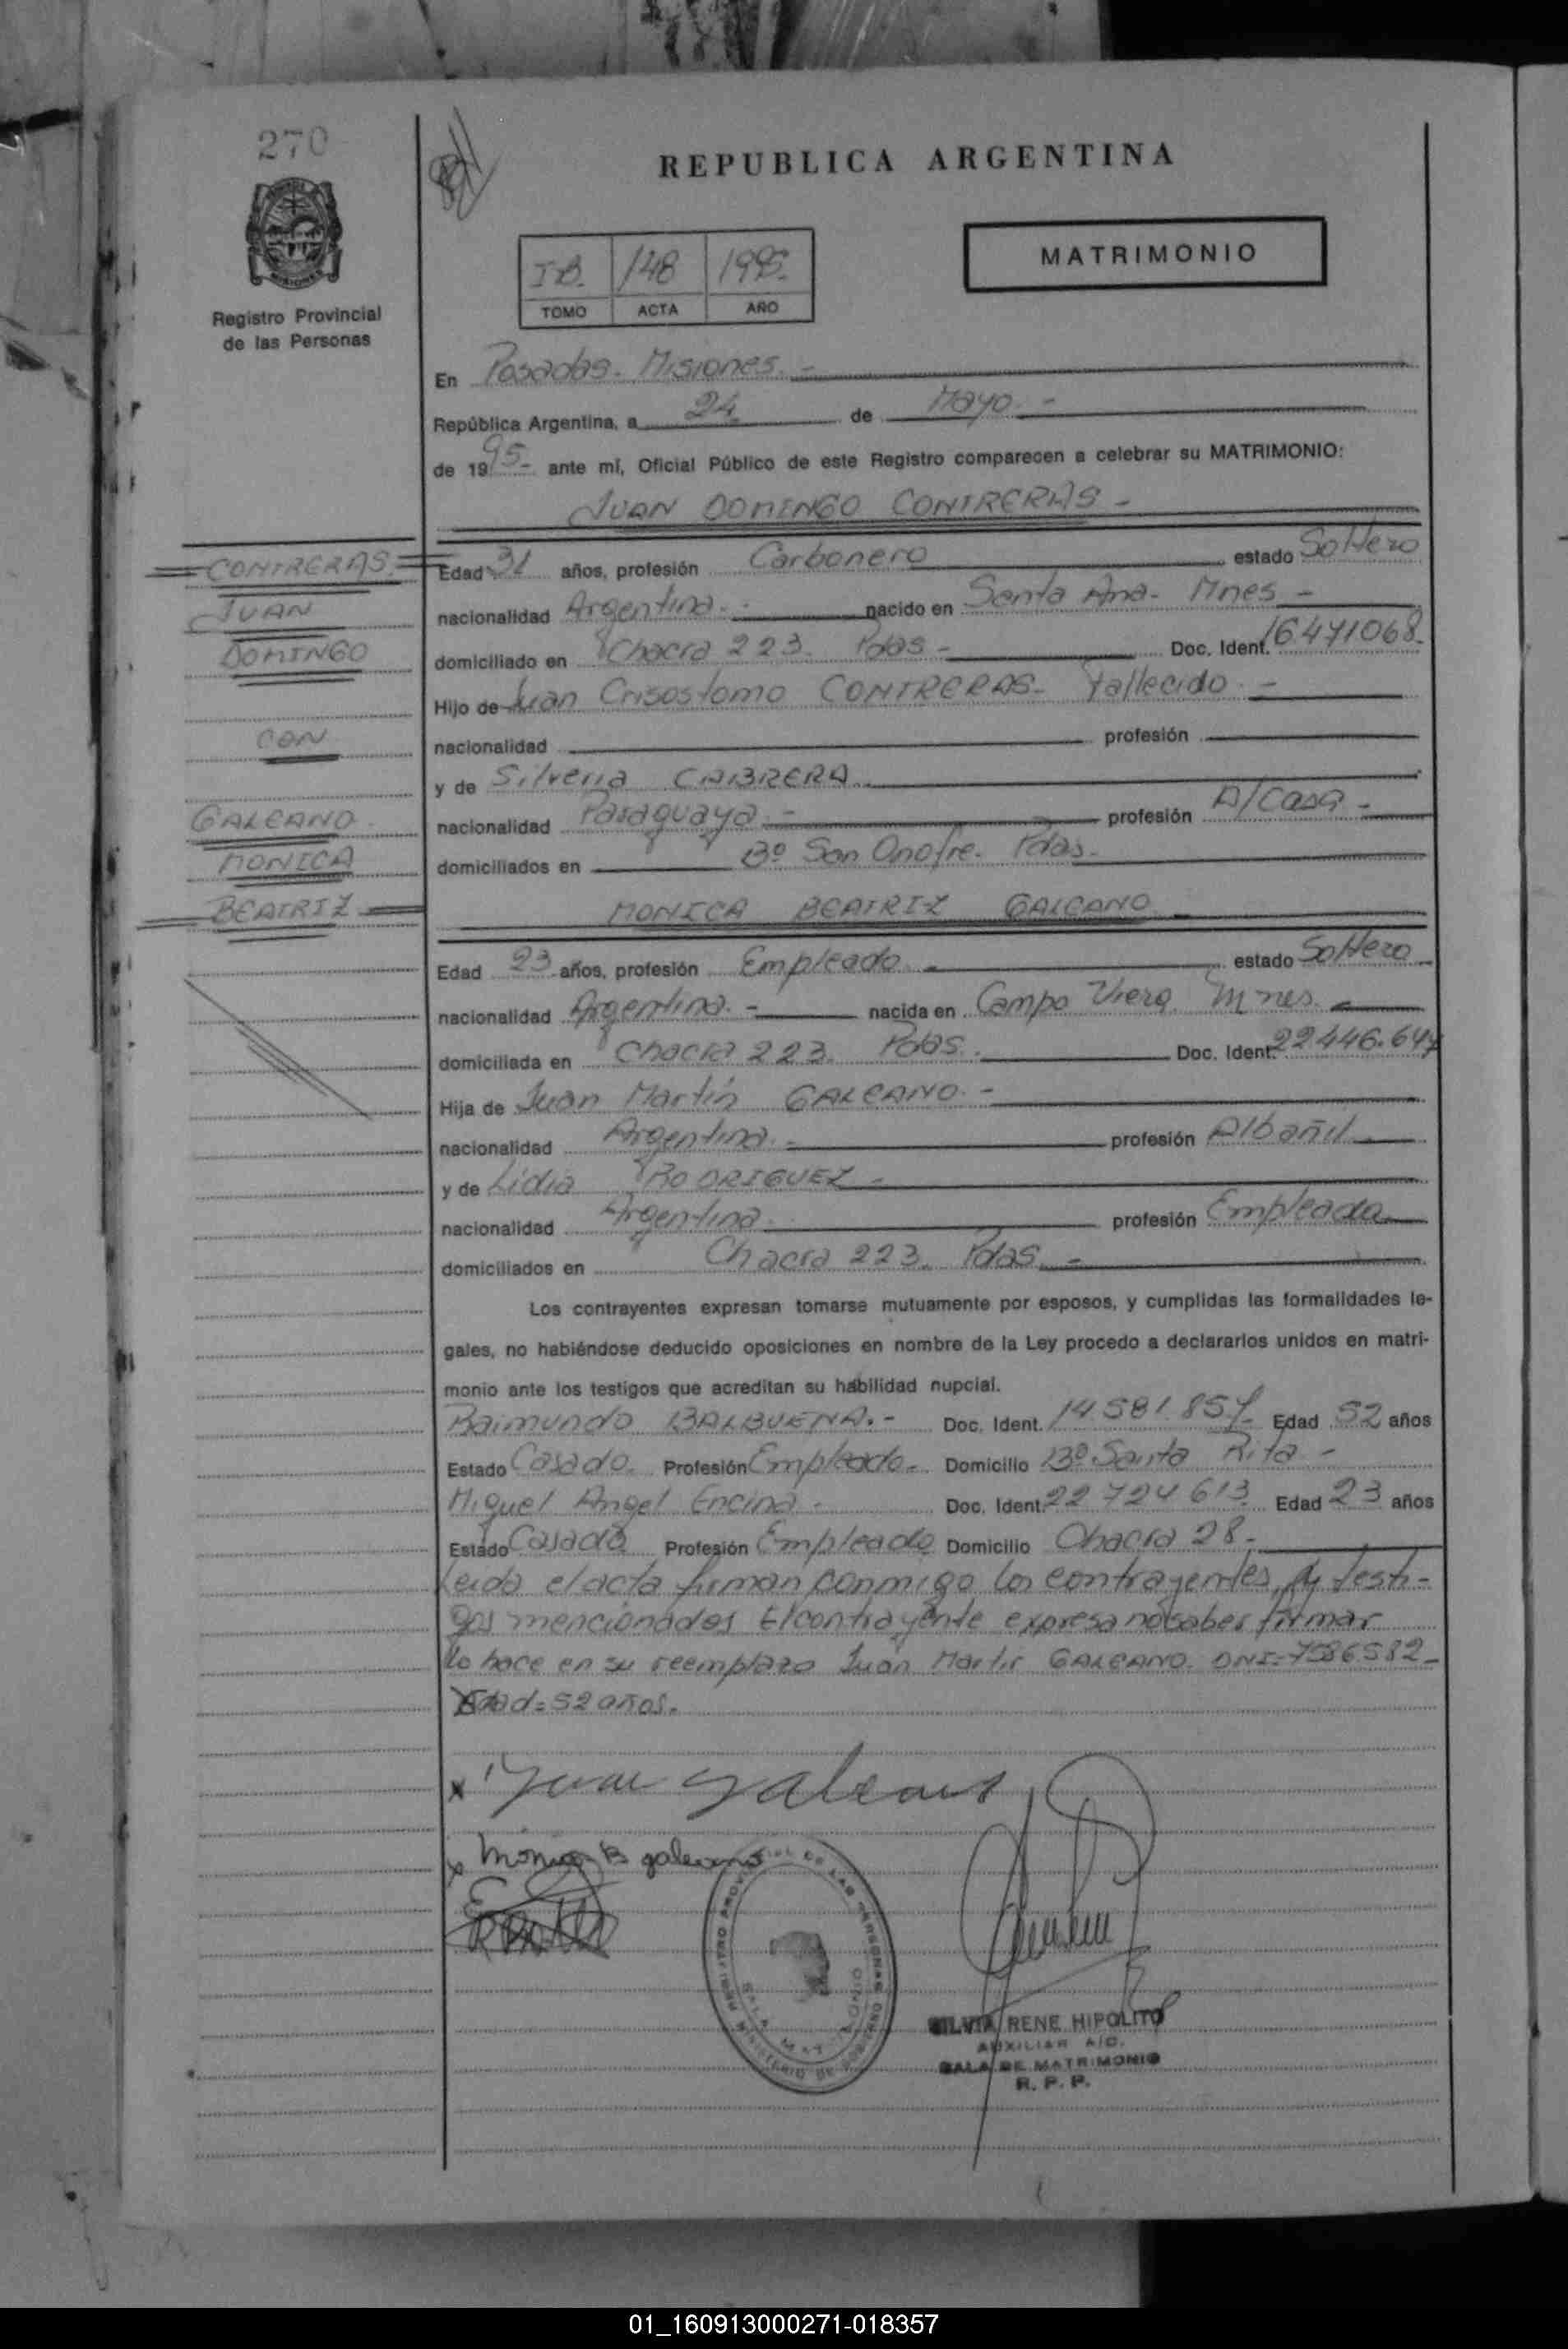 270
REPUBLICA ARGENTINA
MATRIMONIO
Registro Provincial
de las Personas
148 1995.
TOMO ACTA AÑO
En Posadas. Misiones. -
República Argentina, a 24 de Mayo. -
de 1995- ante mí, Oficial Público de este Registro comparecen a celebrar su MATRIMONIO:
JUAN DOMINGO CONTRERAS -
CONTRERAS
JUAN
DOMINGO
CON
GALEANO
MONICA
BEATRIZ
Edad 31 años, profesión Carbonero estado Soltero
nacionalidad Argentina. - nacido en Santa Ana - Mnes -
domiciliado en Chacra 223. Pdas - Doc. Ident. 16.471068.
Hijo de Juan Crisostomo CONTRERAS - Fallecido. -
nacionalidad profesión
y de Silveria CABRERA
nacionalidad Paraguaya. - profesión A/Casa -
domiciliados en Bº San Onofre. Pdas.-
MONICA BEATRIZ GALEANO -
Edad 23 años, profesión Empleado. - estado Soltero
nacionalidad Argentina. - nacida en Campo Viera Mnes. -
domiciliada en Chacra 223. Pdas. Doc. Ident. 22.446.647
Hija de Juan Martín GALEANO. -
nacionalidad Argentina. - profesión Albañil
y de Lidia RODRIGUEZ -
nacionalidad Argentina. profesión Empleada
domiciliados en Chacra 223. Pdas. -
Los contrayentes expresan tomarse mutuamente por esposos, y cumplidas las formalidades le-
gales, no habiéndose deducido oposiciones en nombre de la Ley procedo a declararlos unidos en matri-
monio ante los testigos que acreditan su habilidad nupcial.
Raimundo BALBUENA. - Doc. Ident. 14.581.857 Edad 52 años
Estado Casado. Profesión Empleado. Domicilio Bº Santa Rita -
Miguel Angel Encina. Doc. Ident. 22 724 613. Edad 23 años
Estado Casado Profesión Empleado Domicilio Chacra 28 -
Leida el acta firman conmigo los contrayentes, y testi-
gos mencionados El contrayente expresa no saber firmar
lo hace en su reemplazo Juan Martir GALEANO. DNI= 7586582 -
Edad = 52 años.
x Juan Galeano
x Mónica B galeano
REGISTRO PROVINCIAL DE LAS PERSONAS
MINISTERIO DE GOBIERNO
SALA MATRIMONIO
SILVIA RENE HIPOLITO
AUXILIAR A/C.
SALA DE MATRIMONIO
R. P. P.
01_160913000271-018357